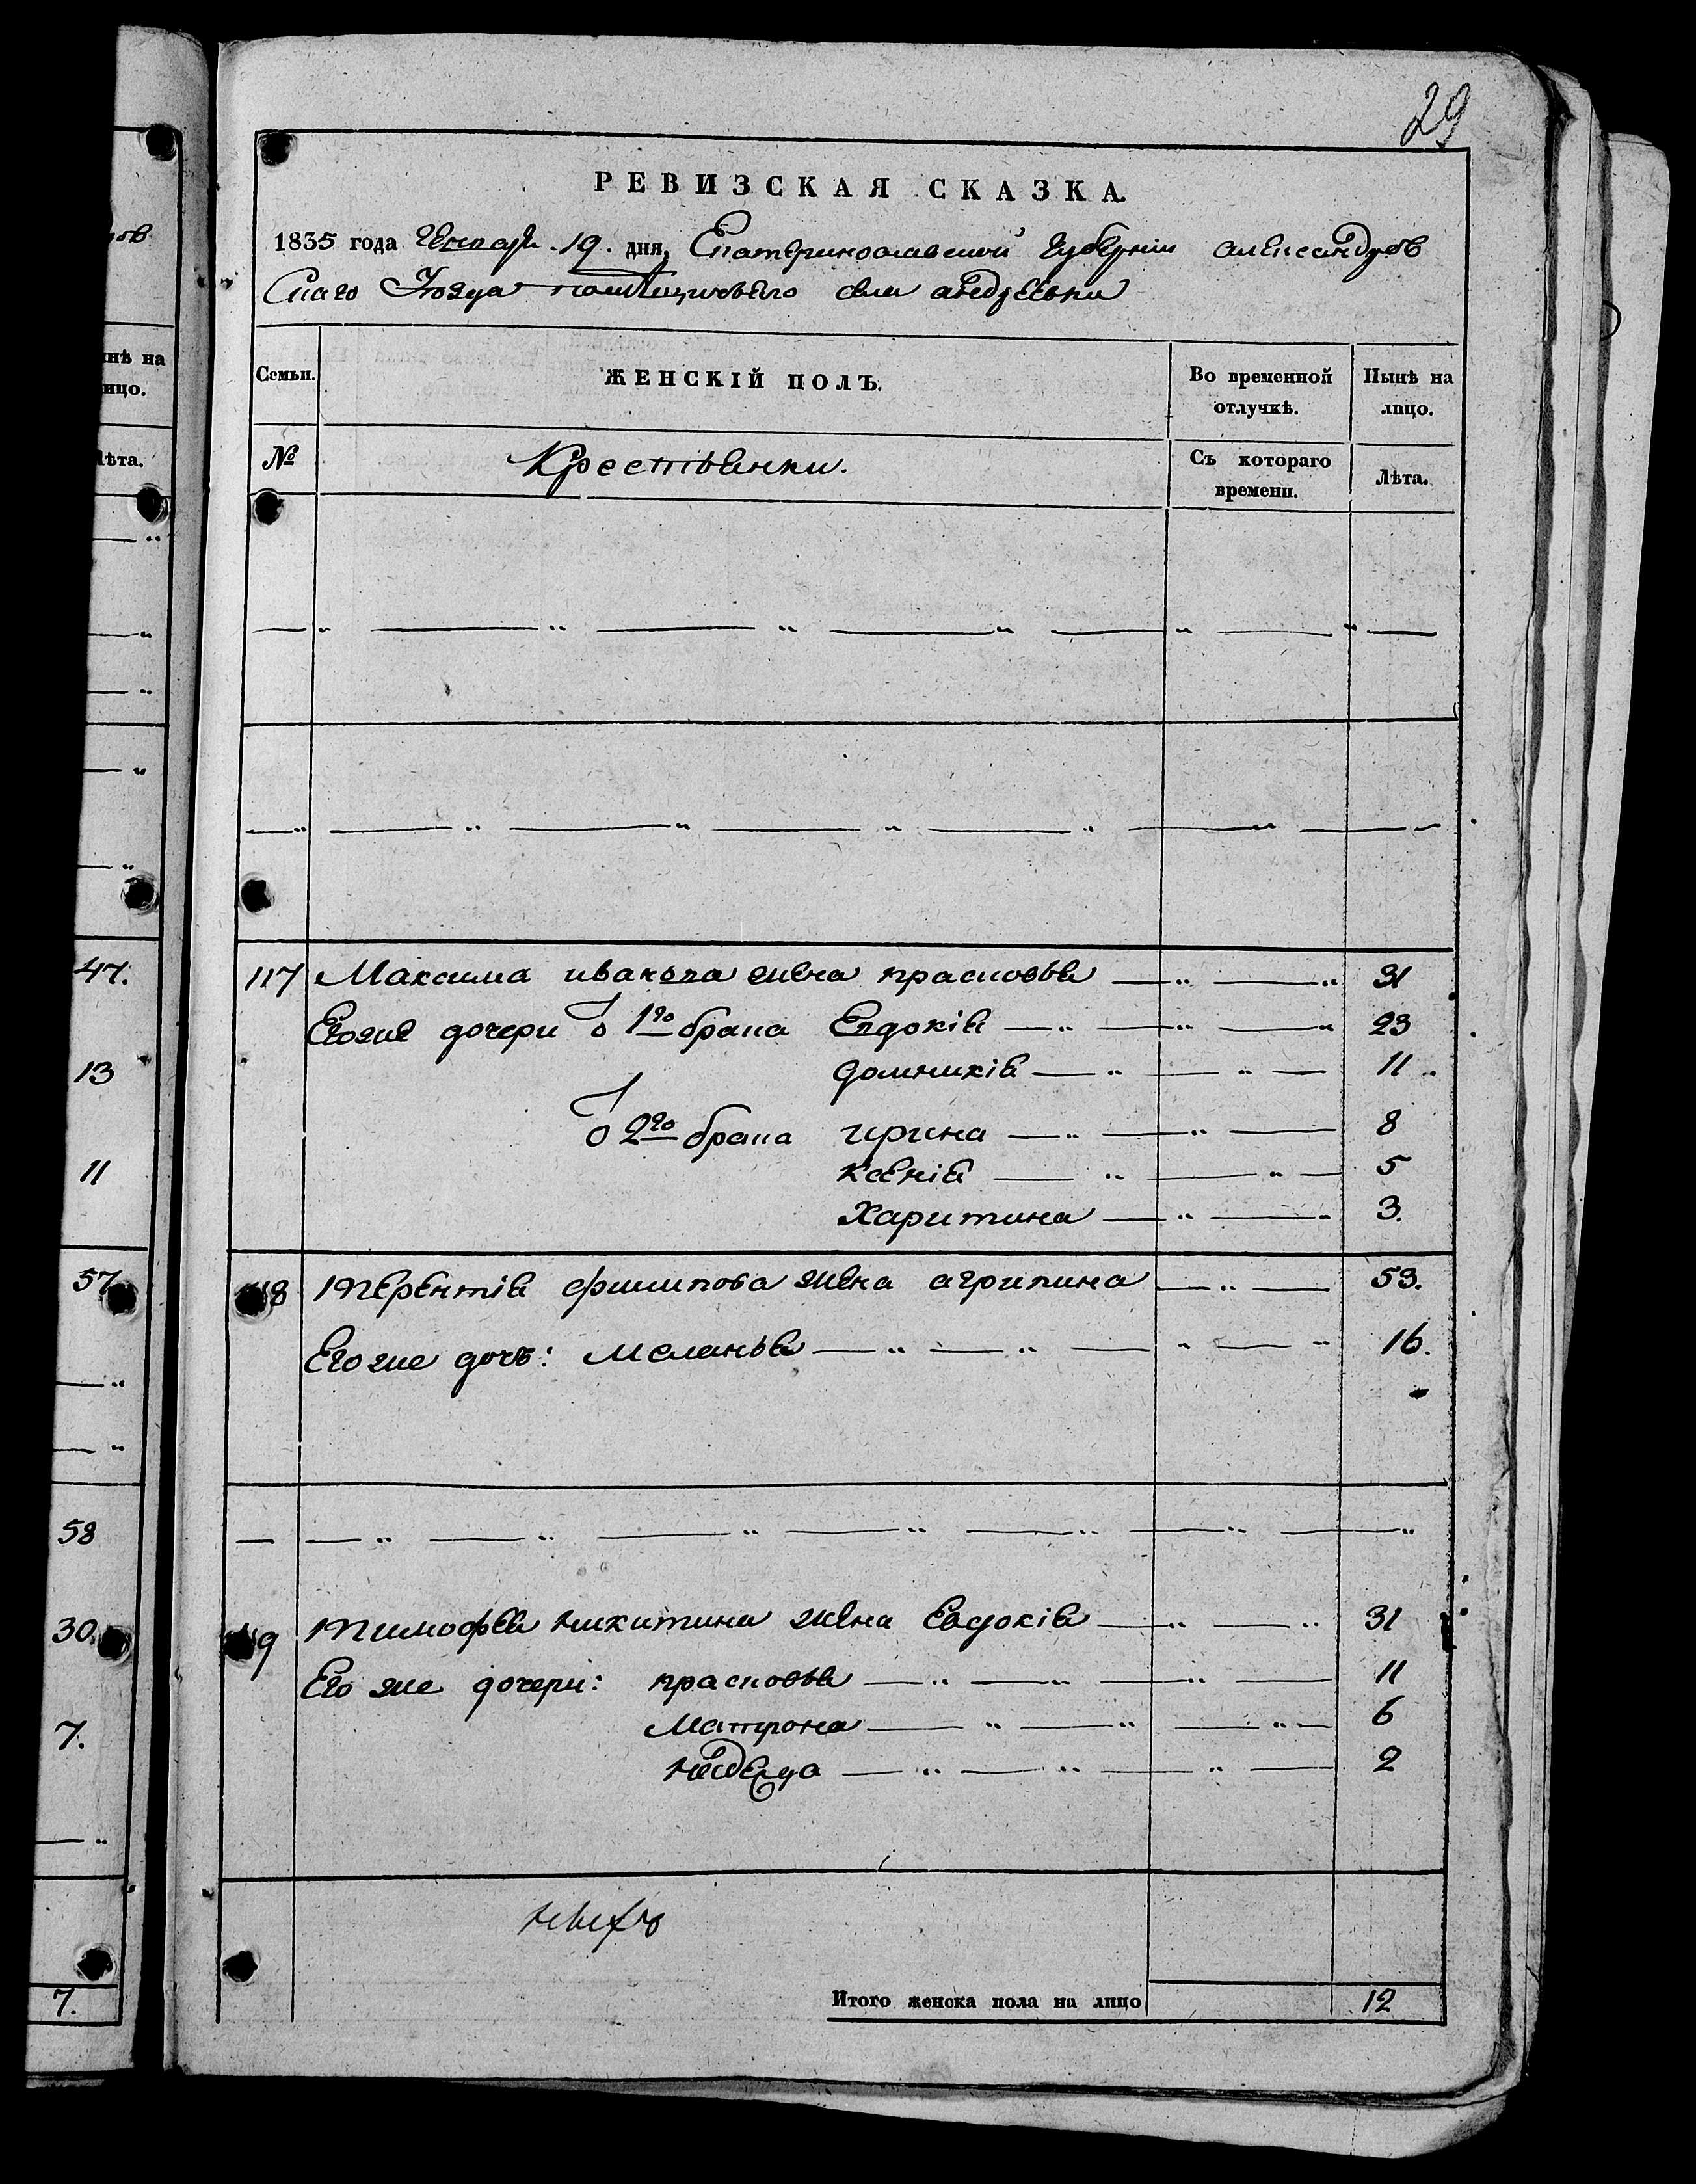 29
РЕВИЗСКАЯ СКАЗКА.
1835 года Генваря 19. дня, Екатеринославской губернiи александров
скаго Уезда помѣщичьяго села андреевки
Семьи. ЖЕНСКIЙ ПОЛЪ. Во временной отлучкѣ. Нынѣ на лицо.
№ Крестьянки. Съ котораго времени. Лѣта.
117 Максима ивакова жена прасковья 31
Его же дочери о 1го брака Евдокiя 23
домникiя 11
о 2го брака ирина 8
ксенiя 5
Харитина 3.
118 терентiя филипова жена агрипина 53.
Его же дочь: меланья 16.
119 тимофея никитина жена Евдокiя 31
Его же дочери: прасковья 11
матрона 6
надежда 2
Итого женска пола на лицо 12
нѣ на
ицо.
Лѣта.
47.
13
11
57
58
30.
7.
7.